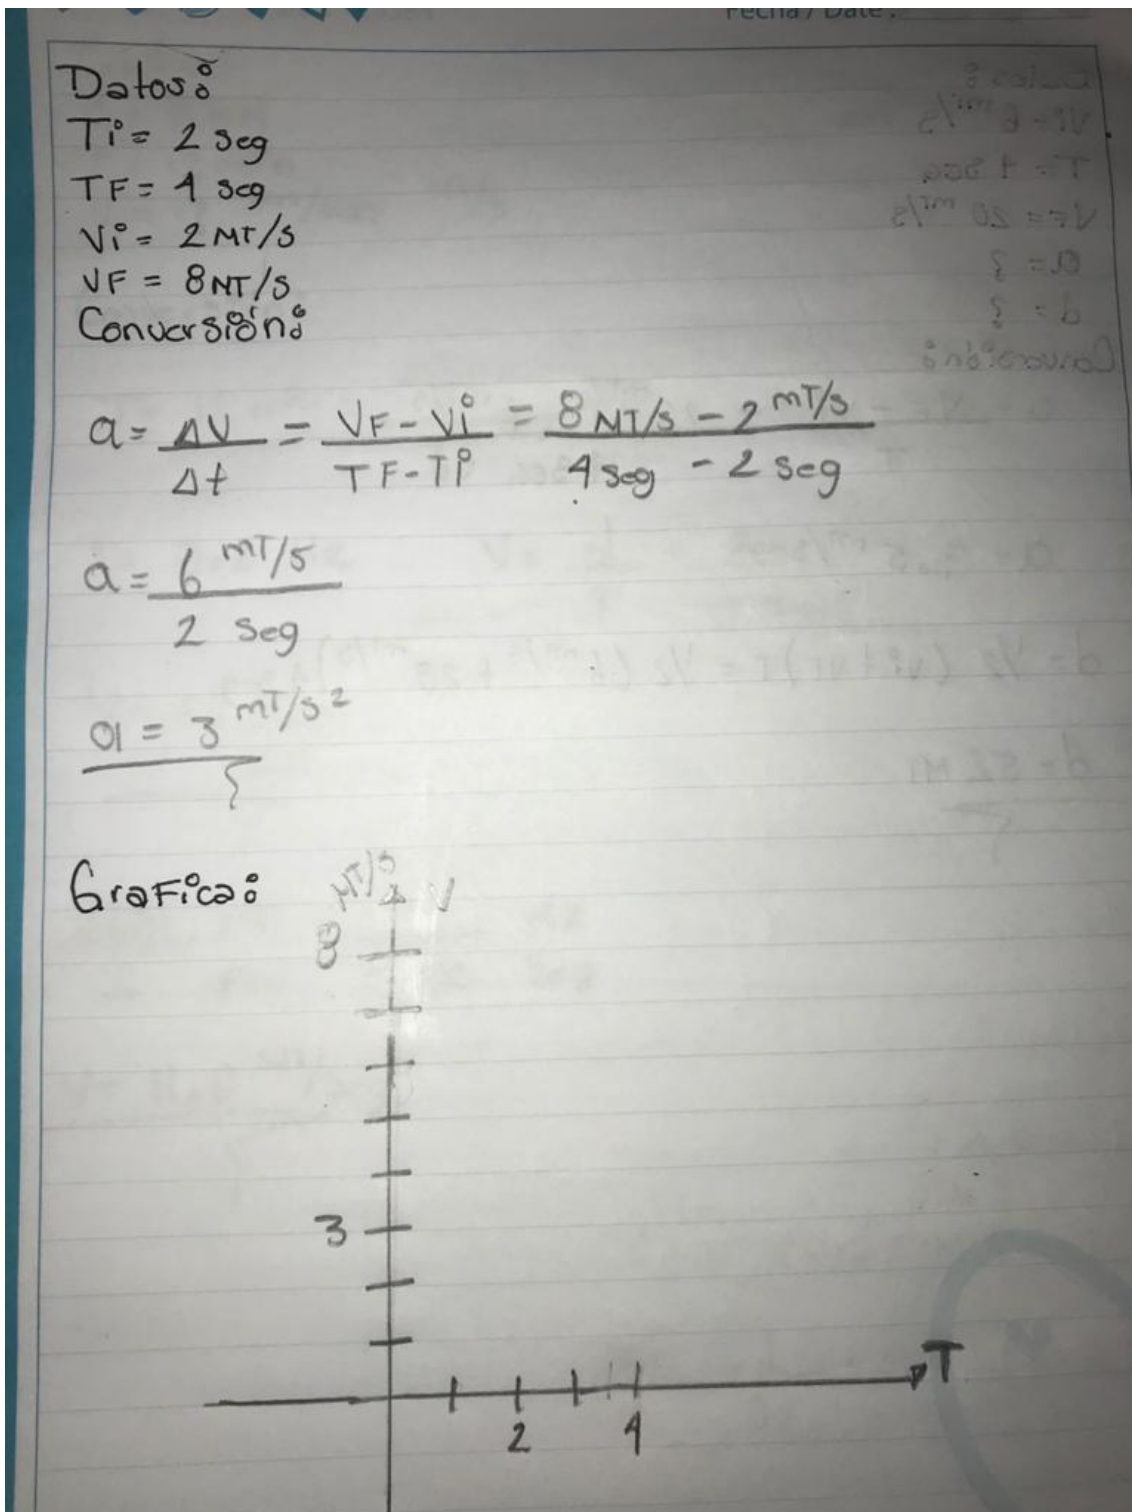 Fecha / Date:
Datos:
Ti = 2 seg
TF = 4 seg
Vi = 2 MT/S
VF = 8 NT/S
Conversión:
a = ΔV/Δt = VF - Vi/TF - Ti = 8 NT/S - 2 mT/s/4 seg - 2 seg
a = 6 mT/s/2 seg
a = 3 mT/s²
Grafica:
MT/S V
8
3
T
2 4